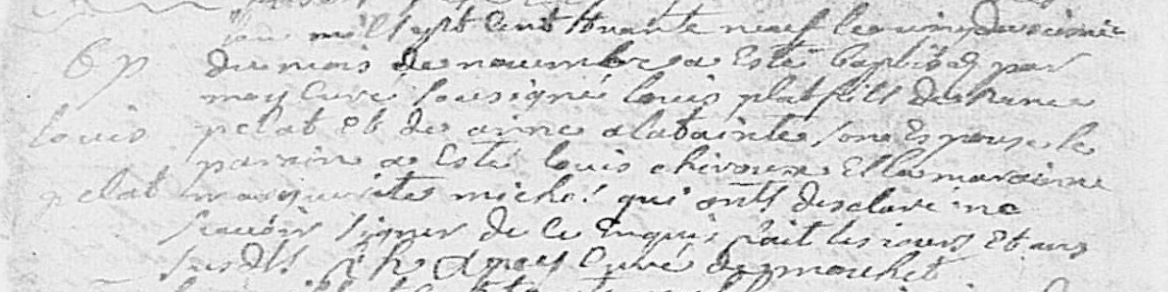 mil sept cent trante neuf le vingt deuxieme
Bp du mois de novembre a Esté baptisé par
moy Curé sousigné louis plat fils de
louis pelat Et de anne alabainte son Espouse le
parain a Esté louis chiroux Et la maraine
pelat marguerite miché qui onts desclare ne
scavoir signer de ce Enquis fait les jours Et ans
susdts Curé de mouchet